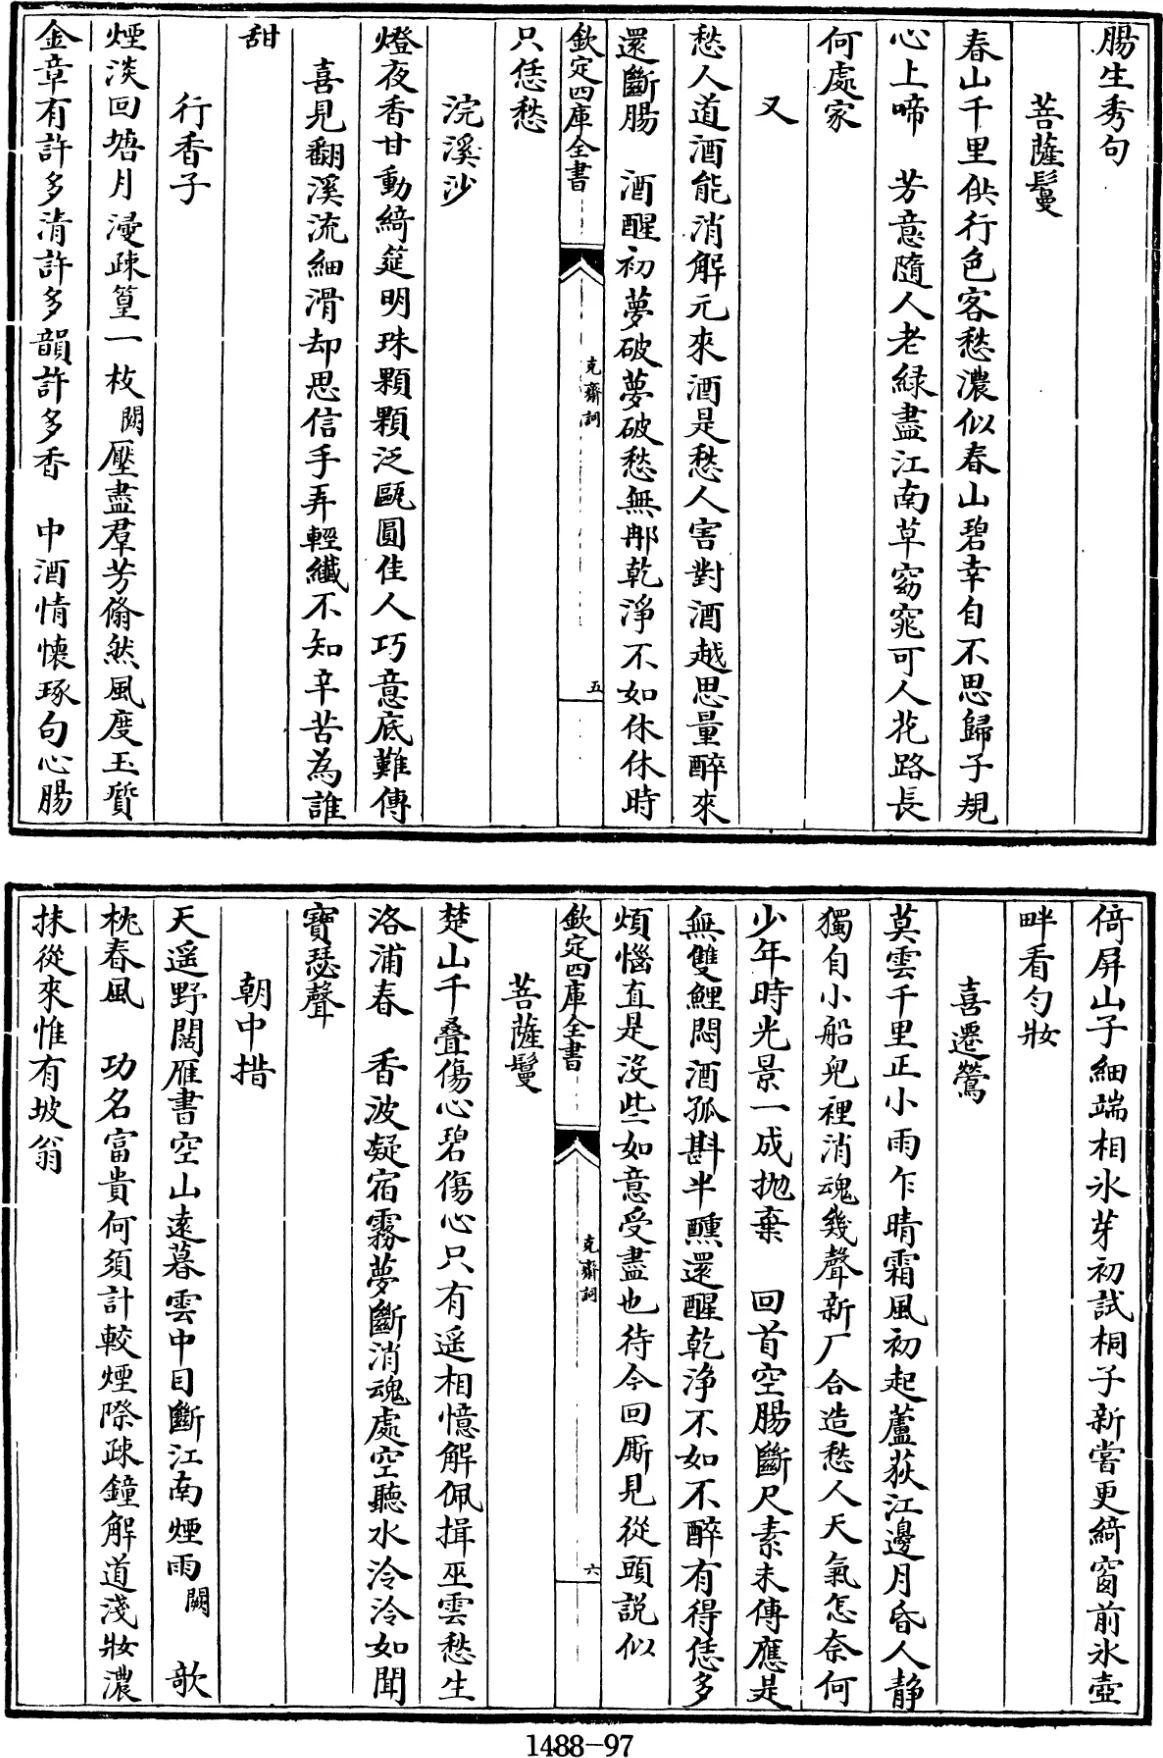 腸生秀句
菩薩鬘
春山千里供行色客愁濃似春山碧幸自不思歸子規
心上啼　芳意隨人老緑盡江南草窈窕可人花路長
何處家
又
愁人道酒能消解元來酒是愁人害對酒越思量醉來
還斷腸　酒醒初夢破夢破愁無那乾淨不如休休時
欽定四庫全書　克齋詞　五
只恁愁
浣溪沙
燈夜香甘動綺筵明珠顆顆泛甌圓佳人巧意底難傳
喜見翻溪流細滑却思信手弄輕纖不知辛苦為誰
甜
行香子
煙淡回塘月浸疎篁一枝闕壓盡羣芳翛然風度玉質
金章有許多清許多韻許多香　中酒情懷琢句心腸
倚屏山子細端相氷芽初試桐子新嘗更綺窗前氷壺
畔看勻妝
喜遷鶯
莫雲千里正小雨乍晴霜風初起蘆荻江邊月昏人靜
獨自小船兒裡消魂幾聲新厂合造愁人天氣怎奈何
少年時光景一成抛棄　回首空腸斷尺素未傳應是
無雙鯉悶酒孤斟半醺還醒乾淨不如不醉有得恁多
煩惱直是沒些如意受盡也待今回厮見從頭説似
欽定四庫全書　克齋詞　六
菩薩鬘
楚山千疊傷心碧傷心只有遥相憶解佩揖巫雲愁生
洛浦春　香波凝宿霧夢斷消魂處空聽水泠泠如聞
寶瑟聲
朝中措
天遥野闊雁書空山逺暮雲中目斷江南煙雨闕　歌
桃春風　功名富貴何須計較煙際疎鐘解道淺妝濃
抹從來惟有坡翁
1488—97